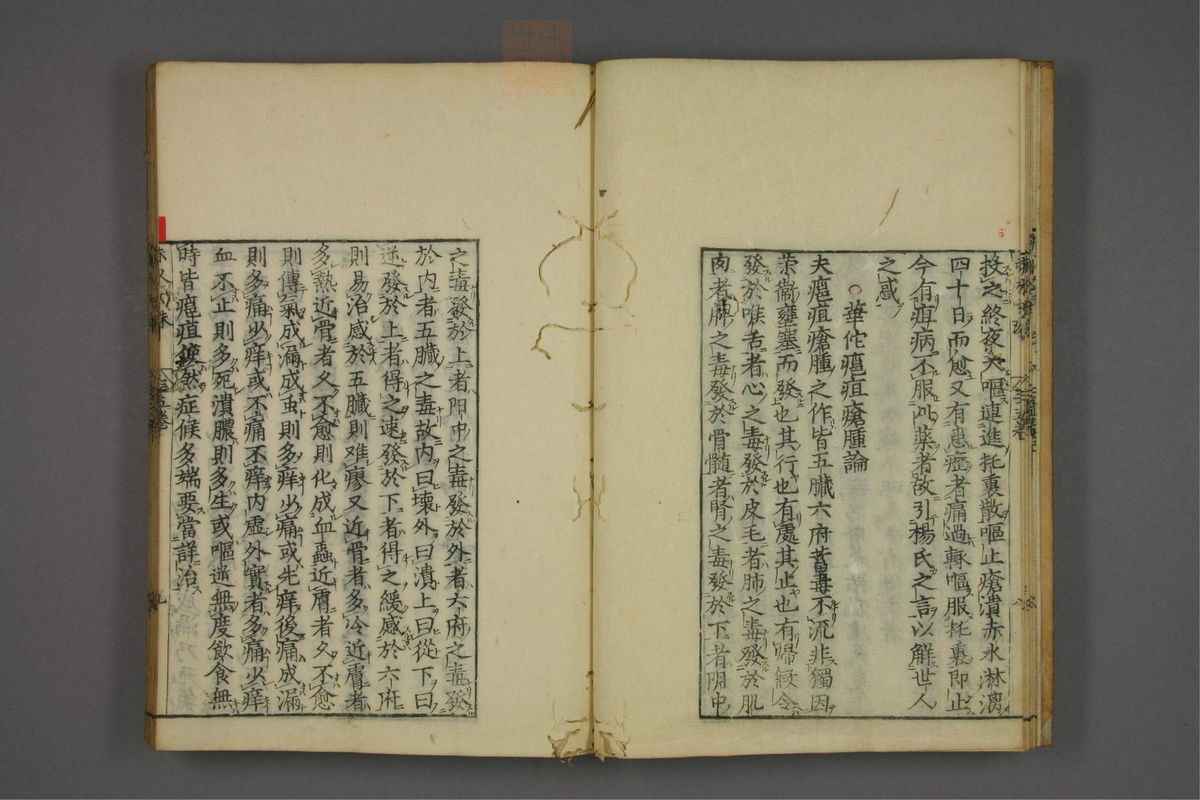 投之終夜大嘔連進托裏散嘔止瘡潰赤水淋漓
四十日而愈又有患瘂者痛過輙嘔服托裏即止
今有疽病不服此藥者故引楊氏之言以解世人
之惑
○華佗瘡疽瘡腫論
夫瘡疽瘡腫之作皆五臟六府蓄毒不流非獨因
荣衞壅塞而發也其行也有處其止也有歸假令
發於喉舌者心之毒發於皮毛者肺之毒發於肌
肉者脾之毒發於骨髓者腎之毒發於下者阴中
之毒發於上者阳中之毒發於外者六府之毒發
於内者五臟之毒故内曰壞外曰潰上曰從下曰
逆發於上者得之速發於下者得之緩感於六府
則易治感於五臟則难瘳又近骨者多冷近膚者
多熱近骨者久不愈則化成血蟲近膚者久不愈
則傳氣成漏成虫則多痒少痛或先痒後痛成漏
則多痛少痒或不痛不痒内虚外實者多痛少痒
血不正則多死潰膿則多生或嘔逆無度飲食無
時皆瘡疽使然症候多端要當詳治